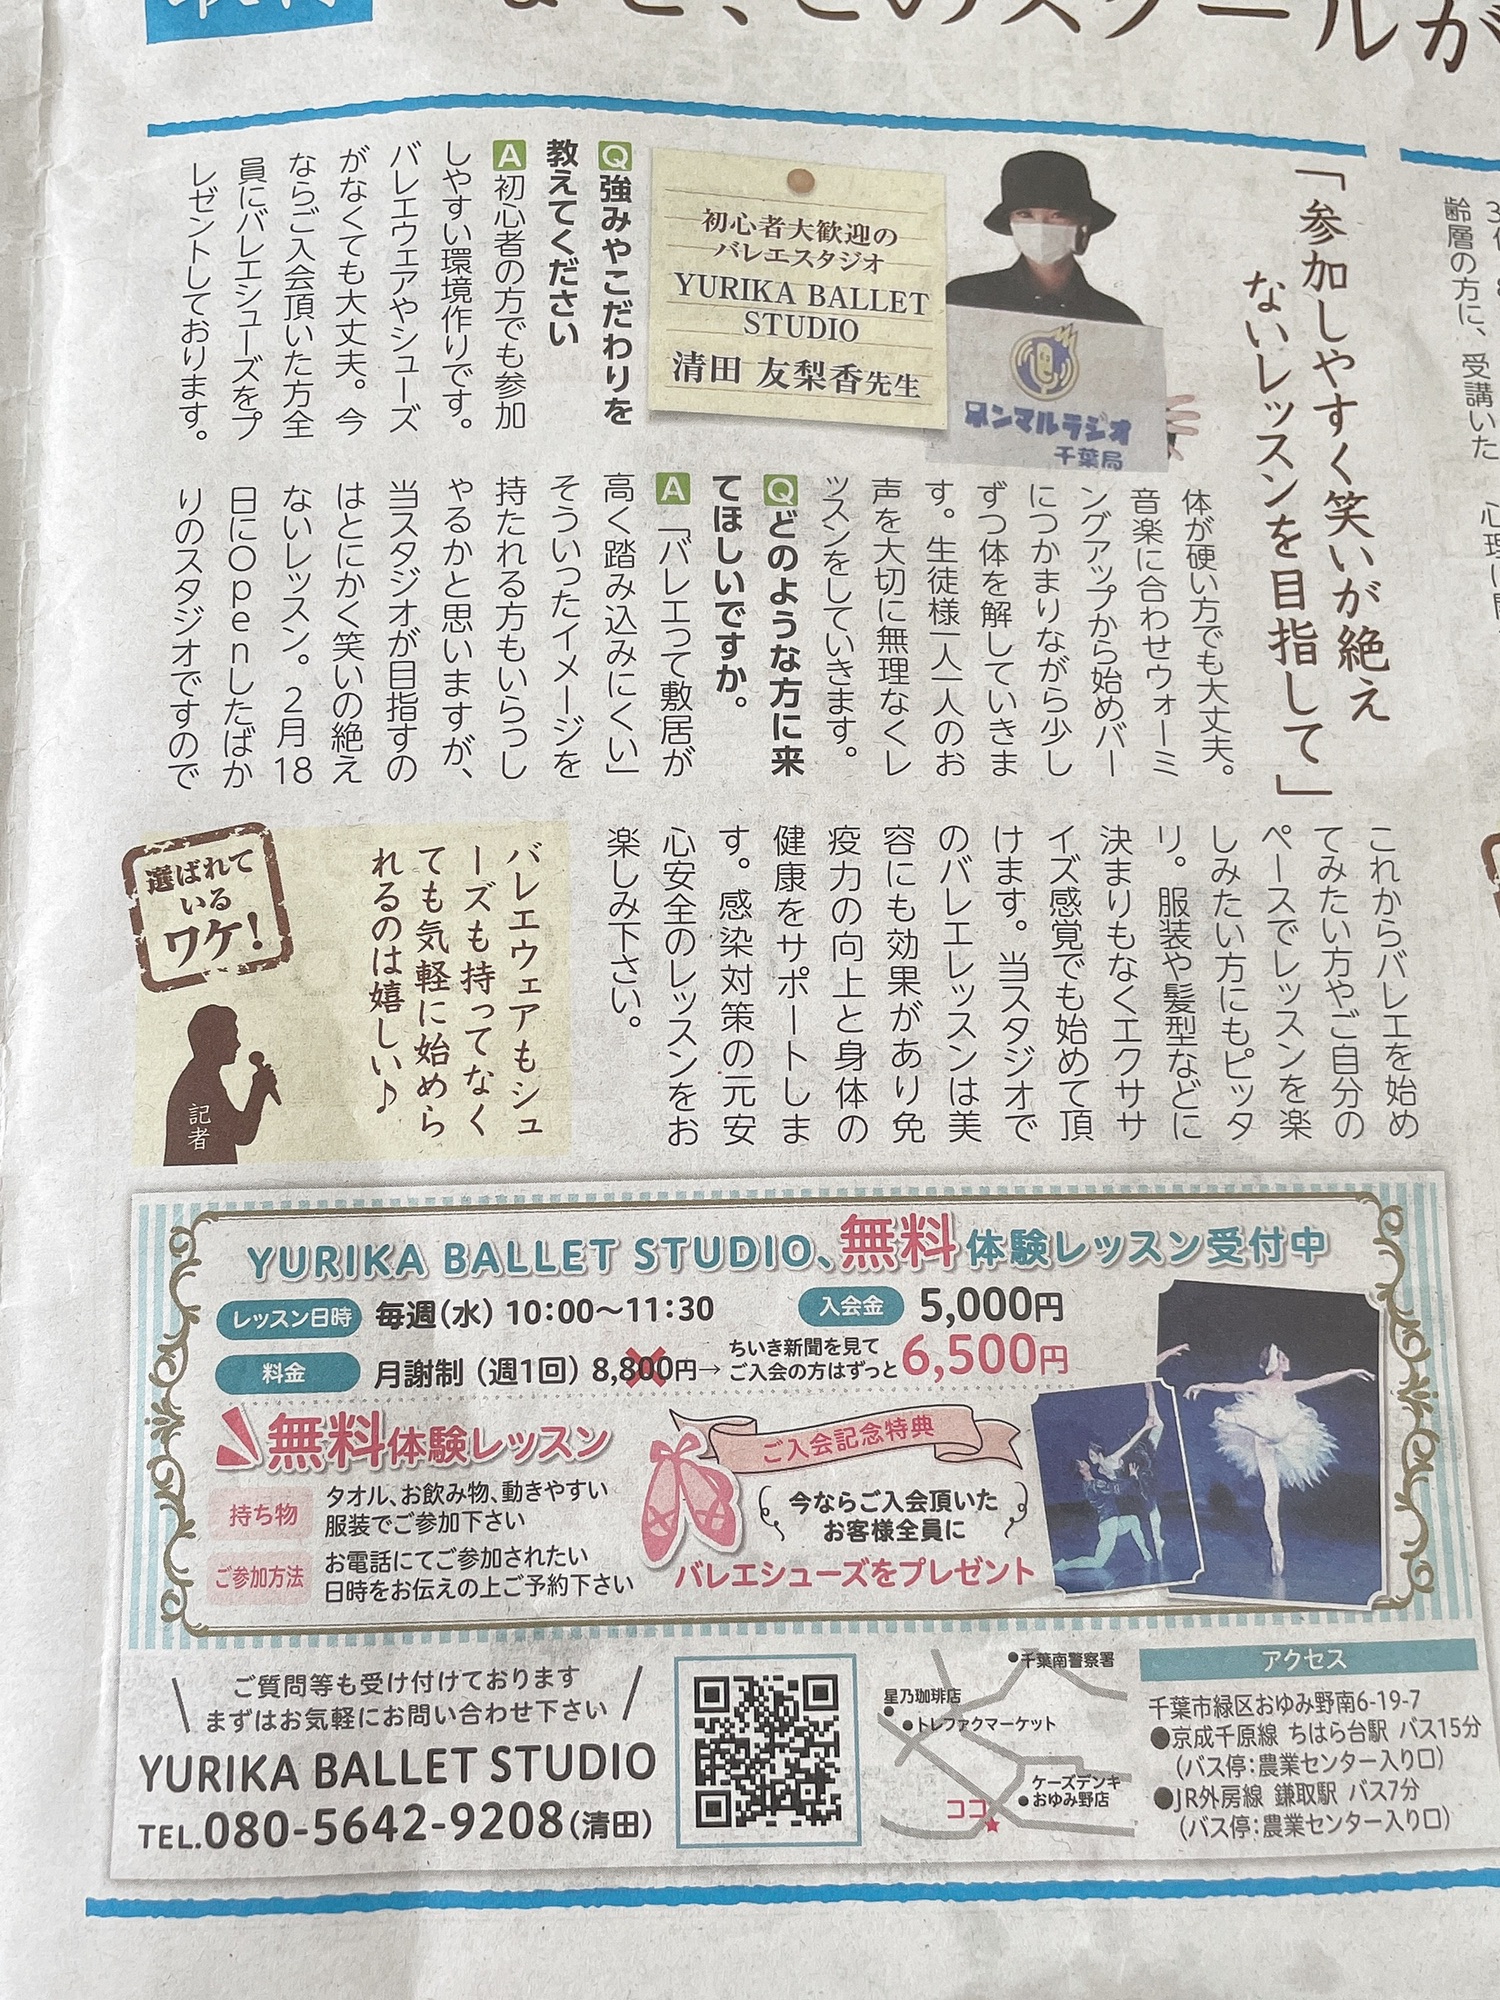 「参加しやすく笑いが絶え
ないレッスンを目指して」
初心者大歓迎の
バレエスタジオ
YURIKA BALLET
STUDIO
清田 友梨香先生
ホンマルラジオ
千葉局
Q強みやこだわりを
教えてください
A初心者の方でも参加
しやすい環境作りです。
バレエウェアやシューズ
がなくても大丈夫。今
ならご入会頂いた方全
員にバレエシューズをプ
レゼントしております。
体が硬い方でも大丈夫。
音楽に合わせウォーミ
ングアップから始めバー
につかまりながら少し
ずつ体を解していきま
す。生徒様一人一人のお
声を大切に無理なくレ
ッスンをしていきます。
Qどのような方に来
てほしいですか。
A「バレエって敷居が
高く踏み込みにくい」
そういったイメージを
持たれる方もいらっし
ゃるかと思いますが、
当スタジオが目指すの
はとにかく笑いの絶え
ないレッスン。2月18
日にOpenしたばか
りのスタジオですので
これからバレエを始め
てみたい方やご自分の
ペースでレッスンを楽
しみたい方にもピッタ
リ。服装や髪型などに
決まりもなくエクササ
イズ感覚でも始めて頂
けます。当スタジオで
のバレエレッスンは美
容にも効果があり免
疫力の向上と身体の
健康をサポートしま
す。感染対策の元安
心安全のレッスンをお
楽しみ下さい。
バレエウェアもシュ
ーズも持ってなく
ても気軽に始めら
れるのは嬉しい♪
選ばれて
いる
ワケ!
記者
YURIKA BALLET STUDIO、無料体験レッスン受付中
レッスン日時 毎週(水) 10:00～11:30 入会金 5,000円
料金 月謝制(週1回) 8,800円→ ちいき新聞を見て
ご入会の方はずっと 6,500円
無料体験レッスン
持ち物 タオル、お飲み物、動きやすい
服装でご参加下さい
ご参加方法 お電話にてご参加されたい
日時をお伝えの上ご予約下さい
ご入会記念特典
今ならご入会頂いた
お客様全員に
バレエシューズをプレゼント
ご質問等も受け付けております
まずはお気軽にお問い合わせ下さい
YURIKA BALLET STUDIO
TEL.080-5642-9208(清田)
●千葉南警察署
星乃珈琲店
●トレファクマーケット
ケーズデンキ
●おゆみ野店
ココ
アクセス
千葉市緑区おゆみ野南6-19-7
●京成千原線 ちはら台駅 バス15分
(バス停:農業センター入り口)
●JR外房線 鎌取駅 バス7分
(バス停:農業センター入り口)